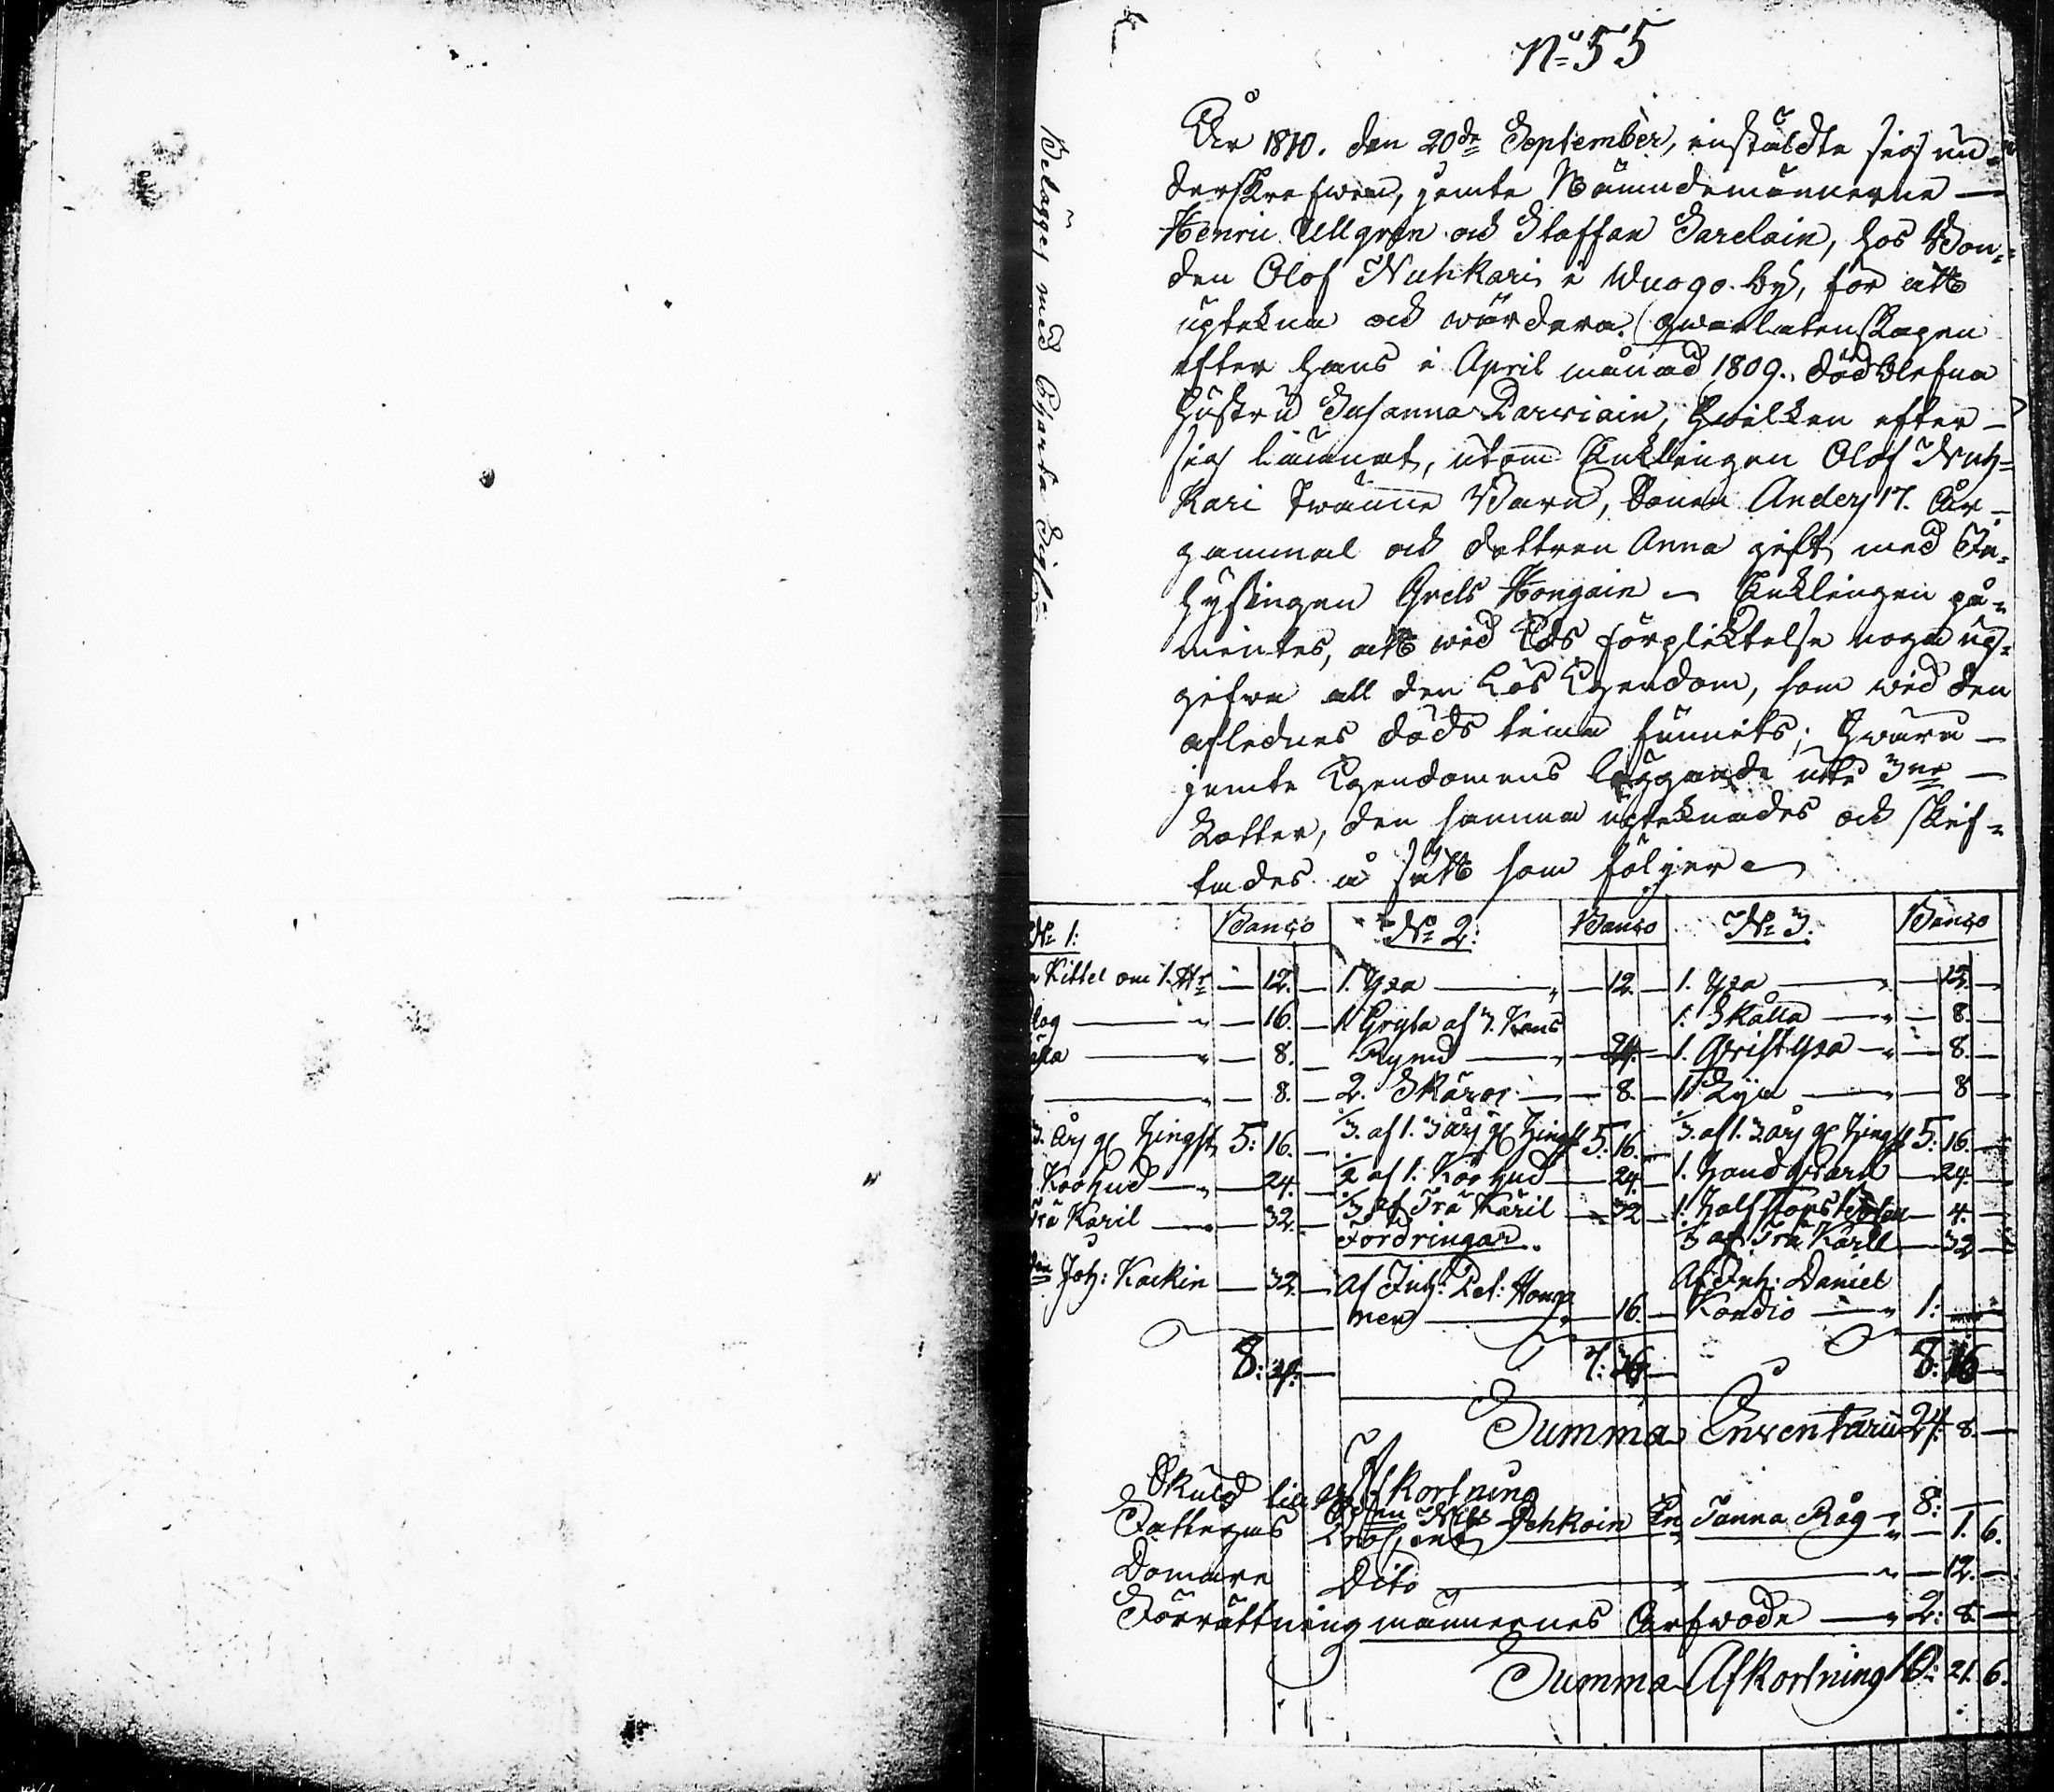 No 55
År 1810. den 20de September, instäldte sig un-
derskrefwen, jemte Nämndemännerne
Henric Ullgren och Staffan Sarelain, hos Bon-
den Olof Nuhkari i Wuogo by, för att
uptekna och wärdera qwarlåtenskapen
efter hans i April månad 1809. död blefna
Hustru Susanna Parviain, hwilken efter
sig lämnat, utom Enklingen Olof Nuh-
kari twänne Barn, Sonen Anders 17. år
gammal och dottren Anna gift med In-
hysingen Grels Hongain – Enklingen på-
mintes, att wid Eds förpliktelse noga up-
gifwa all den Lös Egendom, som wid den
aflednes döds timma funnits; hwaru
jemte Egendomens läggande uti 3ne
Lotter, den samma upteknades och skif-
tades å sätt som följer
Belägges med Charta Sig:
No 1: Banco No 2: Banco No 3. Banco
Kittel om 1. 12. 1. Yxa 12. 1. Yxa 12.
16. 1 Gryta af 3. Kans 1. Skålla 8.
8. Rymd 24. 1. Qvist yxa 8.
8. 2. Skäror 8. 1 Lya 8
3. års gl hingst 5: 16. 1/3. af 1. 3 års gl hingst 5: 16. 1/3. af 1. 3 års gl hingst 5: 16.
Koo hud 24. 1/2 af 1. Koo hud 24. 1. handqvarn 24.
Trä Käril 32. 1/3 af Trä Käril 32 1. halfstops 4.
Fordringar. 1/3 af Trä Käril 32
Joh: Kackin 32. Af Inh: Pet: Hongi Af Inh: Daniel
nen 16. Kondio 1:
8: 24. 7: 8: 16
Summa Inventarii 24: 8.
Skuld till Afkortning
Nils Pehkoin En Tunna Råg 8:
Fattigas Procent 1. 6.
Domare Dito 12.
Förrättningsmännernes Arfwode 2: 8.
Summa Afkortning 10: 21. 6.